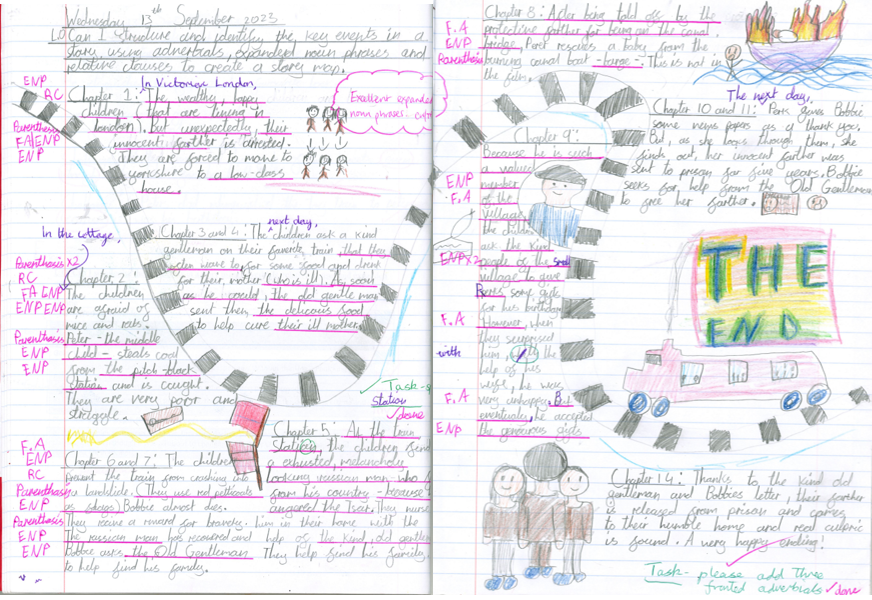 Wednesday 13th September 2023
LO Can I structure and identify the key events in a
story using adverbials, expanded noun phrases and
relative clauses to create a story map.
In Victorian London,
ENP
RC
Parenthesis
FA ENP
ENP
Chapter 1: The wealthy happy
children (that are living in
london). But unexpectedly, their
innocent farther is arrested.
They are forced to move to
yorkshire to a low-class
house.
Excellent expanded
noun phrases.
In the cottage,
next day,
Chapter 3 and 4: The children ask a kind
gentleman on their favourite train that they
wave to, for some food and drink
for their mother (who is ill). As soon
as he could, the old gentleman
sent them the delicious food
to help cure their ill mother.
Parenthesis x2
RC
FA ENP
ENP ENP
Parenthesis
ENP
ENP
Chapter 2:
The children
are afraid of
mice and rats.
Peter - the middle
child - steals coal
from the pitch-black
station and is caught.
They are very poor and
struggle.
Task-
Station
done
Chapter 5: At the train
station, the children find
a exhausted, melancholy
looking russian man, who
from his country - because
angered the Tsar. They nurse
him in their home with the
help of the kind, old gentleman
They help find his family.
F.A
ENP
RC
Parenthesis
ENP
Parenthesis
ENP
ENP
Chapter 6 and 7: The children
prevent the train from crashing into
a landslide. (They use red petticoats
as ideas) Bobbie almost dies.
They receive a reward for bravery.
The russian man has recovered and
Bobbie asks the Old Gentleman
to help find his family.
F.A
ENP
Parenthesis
Chapter 8: After being told off by the
protective farther for being on the canal
bridge, Peter rescues a baby from the
burning canal boat - barge -. This is not in
the film.
ENP
F.A
ENP x2
F.A
with
F.A
ENP
Chapter 9:
Because he is such
a valued
member
of the
village,
the children
ask the kind
people of the small
village to give
Perks some gifts
for his birthday.
However, when
they surprised
him, the
help of his
wife, he was
very unhappy. But
eventually, he accepted
the generous gifts.
The next day,
Chapter 10 and 11: Perk gives Bobbie
some news papers as a thank you.
But, as she looks through them, she
finds out, her innocent farther was
sent to prison for five years. Bobbie
seeks for help from the Old Gentleman
to free her farther.
THE
END
Chapter 14: Thanks to the kind old
gentleman and Bobbies letter, their farther
is released from prison and comes
to their humble home and real culprit
is found. A very happy ending!
Task- please add three
fronted adverbials done